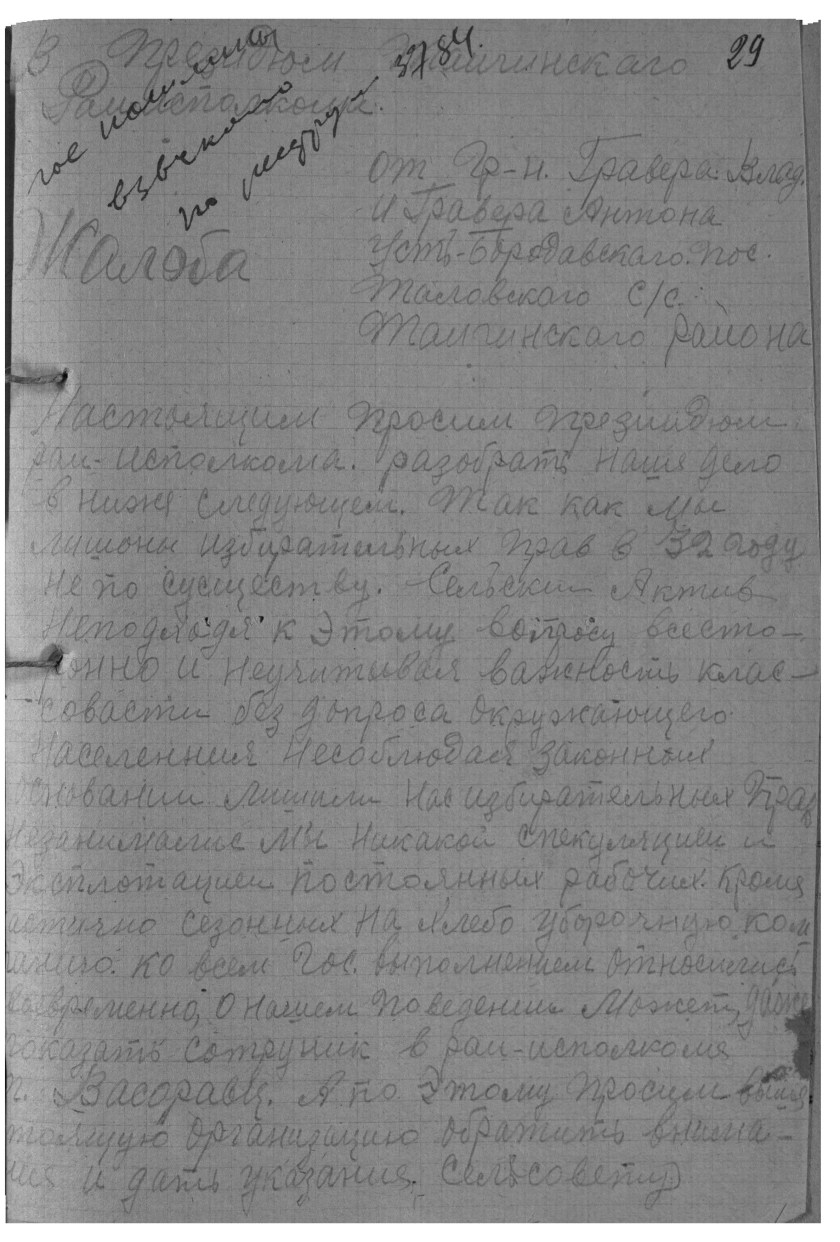 29
В Президюм Таигинскаго
Раиисполкома.
гос пошлины
взыскано
по
От Гр-н. Гравера Влад.
и Гравера Антона
Усть-Бородавскаго. пос.
Таловскаго с/с.
Таигинскаго района
Жалоба
Настоящим просим президюм
раи-исполкома. разобрать наше дело
в ниже следующем. Так как мы
лишоны избирательных прав в 32 году
не по сусществу. Сельскии Актив
Неподходя к этому вопросу всесто-
ронно и неучитывая важность клас-
совасти без допроса окружающего
Населенния Несоблюдая законных
основании лишили нас избирательных прав
Незанималис мы никакои спекуляциеи и
Эксплотациеи постоянных рабочих. Кроме
астично сезонных на хлебо уборочную ком
панию. ко всем Гос. выполнением относились
своевременно, О нашем поведении может даже
показать сотруник в раи-исполкоме
т. А по этому просим выше
тоящую организацию обратить внима-
ния и дать указания. Сельсовету